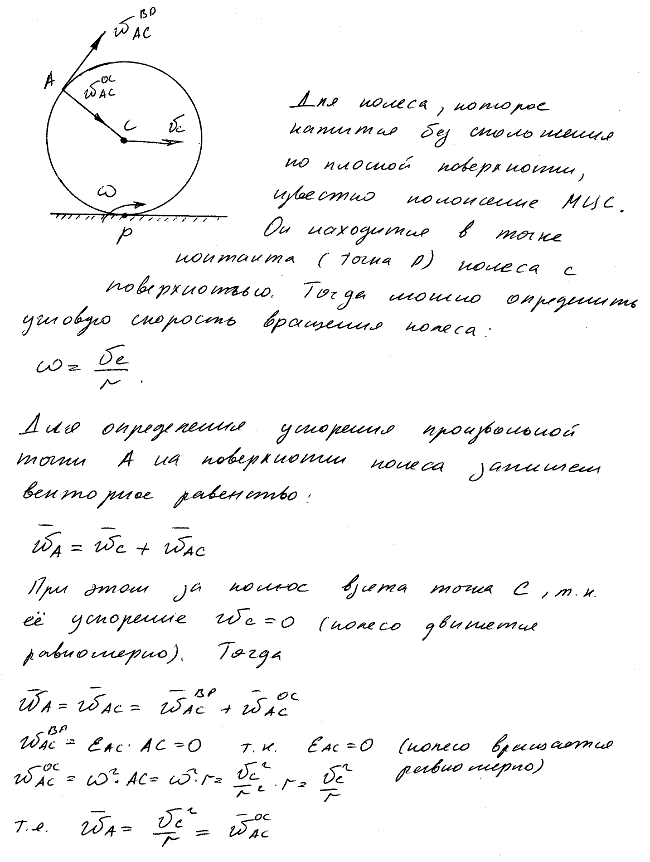 w̅_AC^ВР
A
w̅_AC^ОС
C
v̅_C
ω
P
Для колеса, которое
катится без скольжения
по плоской поверхности,
известно положение МЦС.
Он находится в точке
контакта (точка P) колеса с
поверхностью. Тогда можно определить
угловую скорость вращения колеса:
ω = v_C / r.
Для определения ускорения произвольной
точки A на поверхности колеса запишем
векторное равенство:
w̅_A = w̅_C + w̅_AC
При этом за полюс взята точка C, т.к.
её ускорение w_C = 0 (колесо движется
равномерно). Тогда
w̅_A = w̅_AC = w̅_AC^ВР + w̅_AC^ОС
w̅_AC^ВР = ε_AC · AC = 0 т.к. ε_AC = 0 (колесо вращается
равномерно)
w̅_AC^ОС = ω² · AC = ω² · r = v_C²/r² · r = v_C²/r
т.е. w̅_A = v_C²/r = w̅_AC^ОС